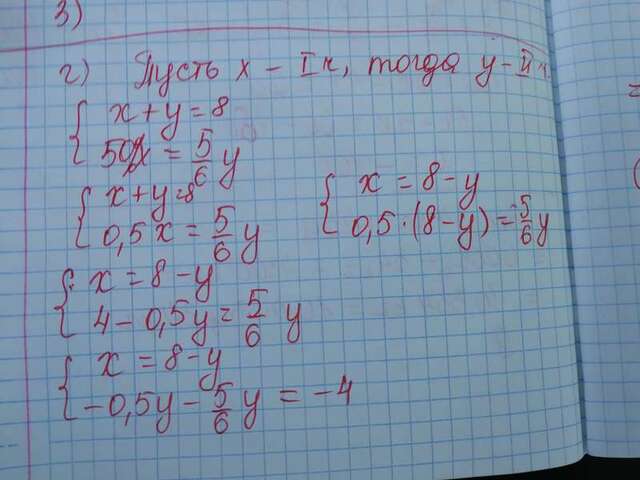 3)
г) Пусть x - I к, тогда y - II к.
{ x + y = 8
50% x = 5/6 y
{ x + y = 8
0,5x = 5/6 y
{ x = 8 - y
0,5 · (8 - y) = 5/6 y
{ x = 8 - y
4 - 0,5y = 5/6 y
{ x = 8 - y
-0,5y - 5/6 y = -4